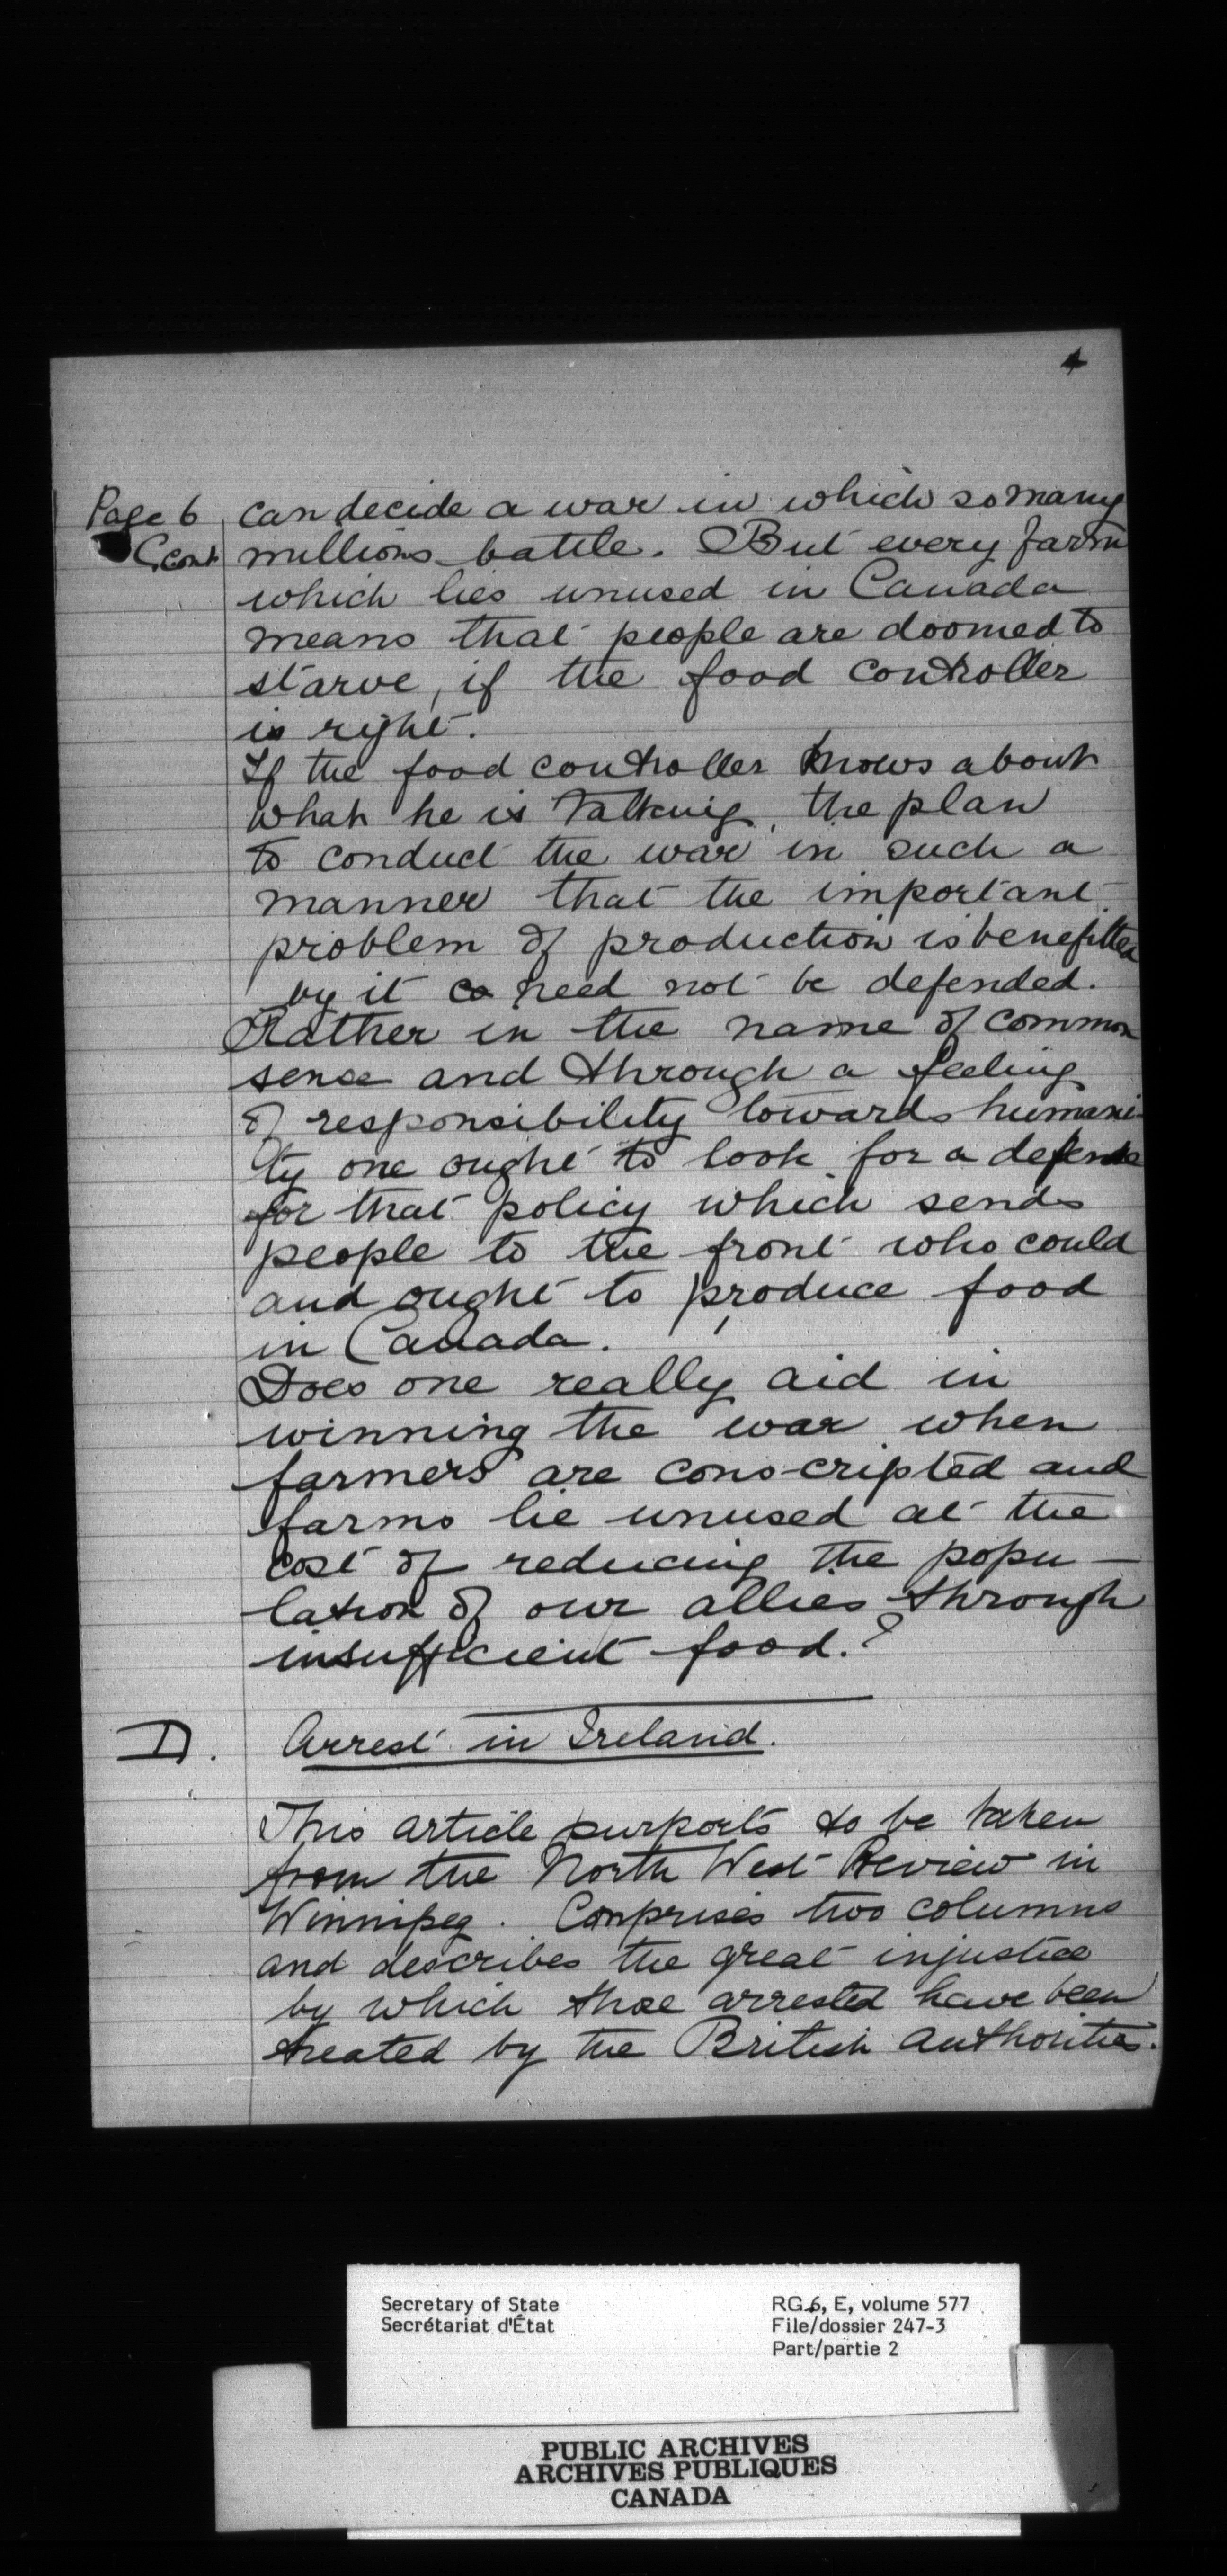 4
Page 6 can decide a war in which so many
C, cont millions battle. But every farm
which lies unused in Canada
means that people are doomed to
starve, if the food controller
is right.
If the food controller knows about
what he is talking, the plan
to conduct the war in such a
manner that the important
problem of production is benefitted
by it need not be defended.
Rather in the name of common
sense and through a feeling
of responsibility towards humani-
ty one ought to look for a defense
for that policy which sends
people to the front who could
and ought to produce food
in Canada.
Does one really aid in
winning the war when
farmers are conscripted and
farms lie unused at the
cost of reducing the popu-
lation of our allies through
insufficient food.?
D. Arrest in Ireland.
This article purports to be taken
from the North West Review in
Winnipeg. Comprises two columns
and describes the great injustice
by which those arrested have been
treated by the British authorities.
Secretary of State
Secrétariat d'État
RG 6, E, volume 577
File/dossier 247-3
Part/partie 2
PUBLIC ARCHIVES
ARCHIVES PUBLIQUES
CANADA